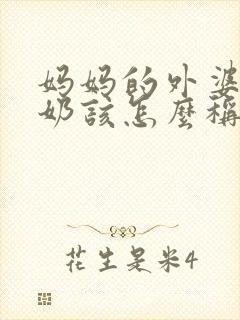 妈妈的外婆
奶該怎麼稱
花生是米4